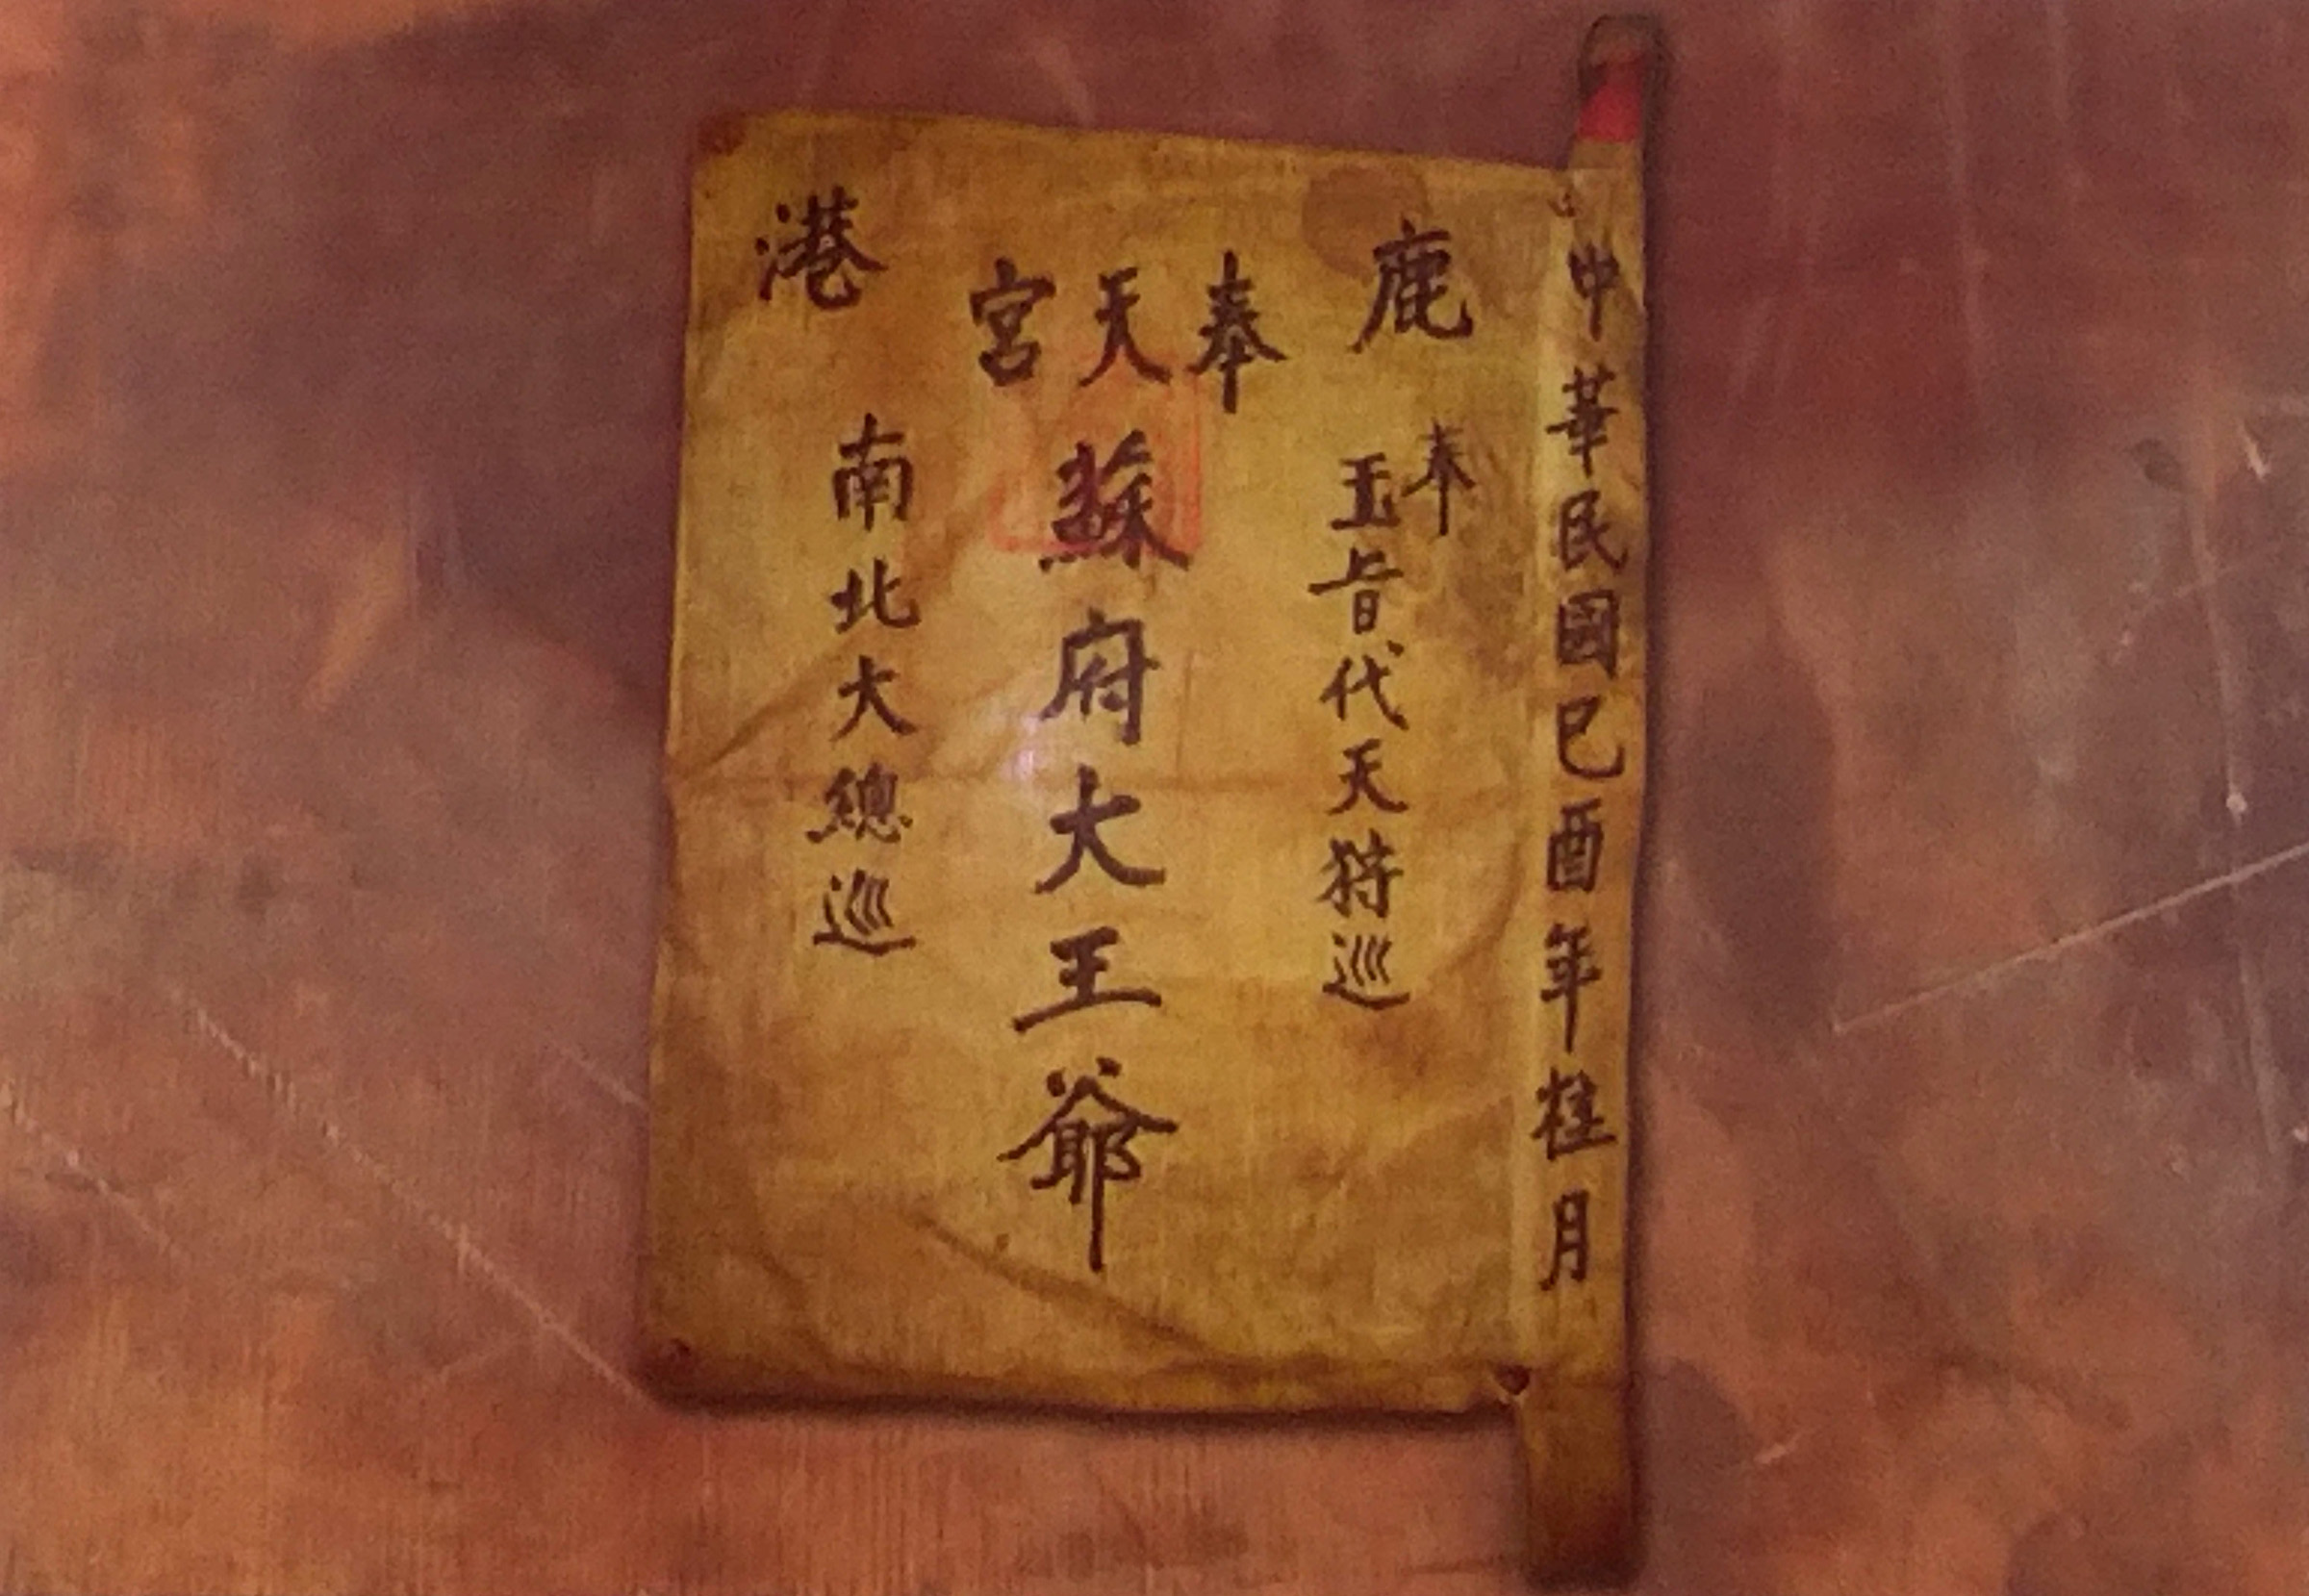 中華民國己酉年桂月
鹿港
奉天宮
奉
玉旨代天狩巡
蘇府大王爺
南北大總巡